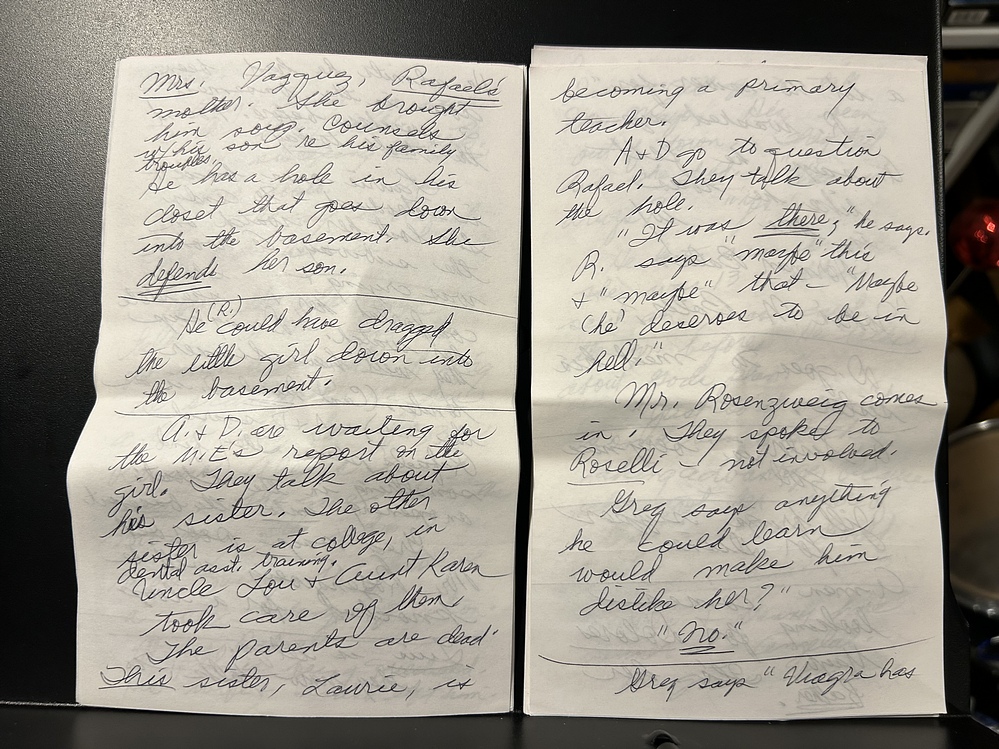 Mrs. Vazquez, Rafael's
mother. She brought
him soup. Counsels
w/his son re his family
troubles.
He has a hole in his
closet that goes down
into the basement. She
defends her son.
He (R.) could have dragged
the little girl down into
the basement.
A. + D. are waiting for
the M.E's report on the
girl. They talk about
his sister. The other
sister is at college, in
dental asst. training.
Uncle Lou + Aunt Karen
took care of them.
The parents are dead.
This sister, Laurie, is
becoming a primary
teacher.
A + D go to question
Rafael. They talk about
the hole.
"It was there," he says.
R. says "maybe" this
+ "maybe" that – "Maybe
(he) deserves to be in
hell."
Mr. Rosenzweig comes
in. They spoke to
Roselli – not involved.
Greg says anything
he could learn
would make him
dislike her?"
"No."
Greg says "Viagra has